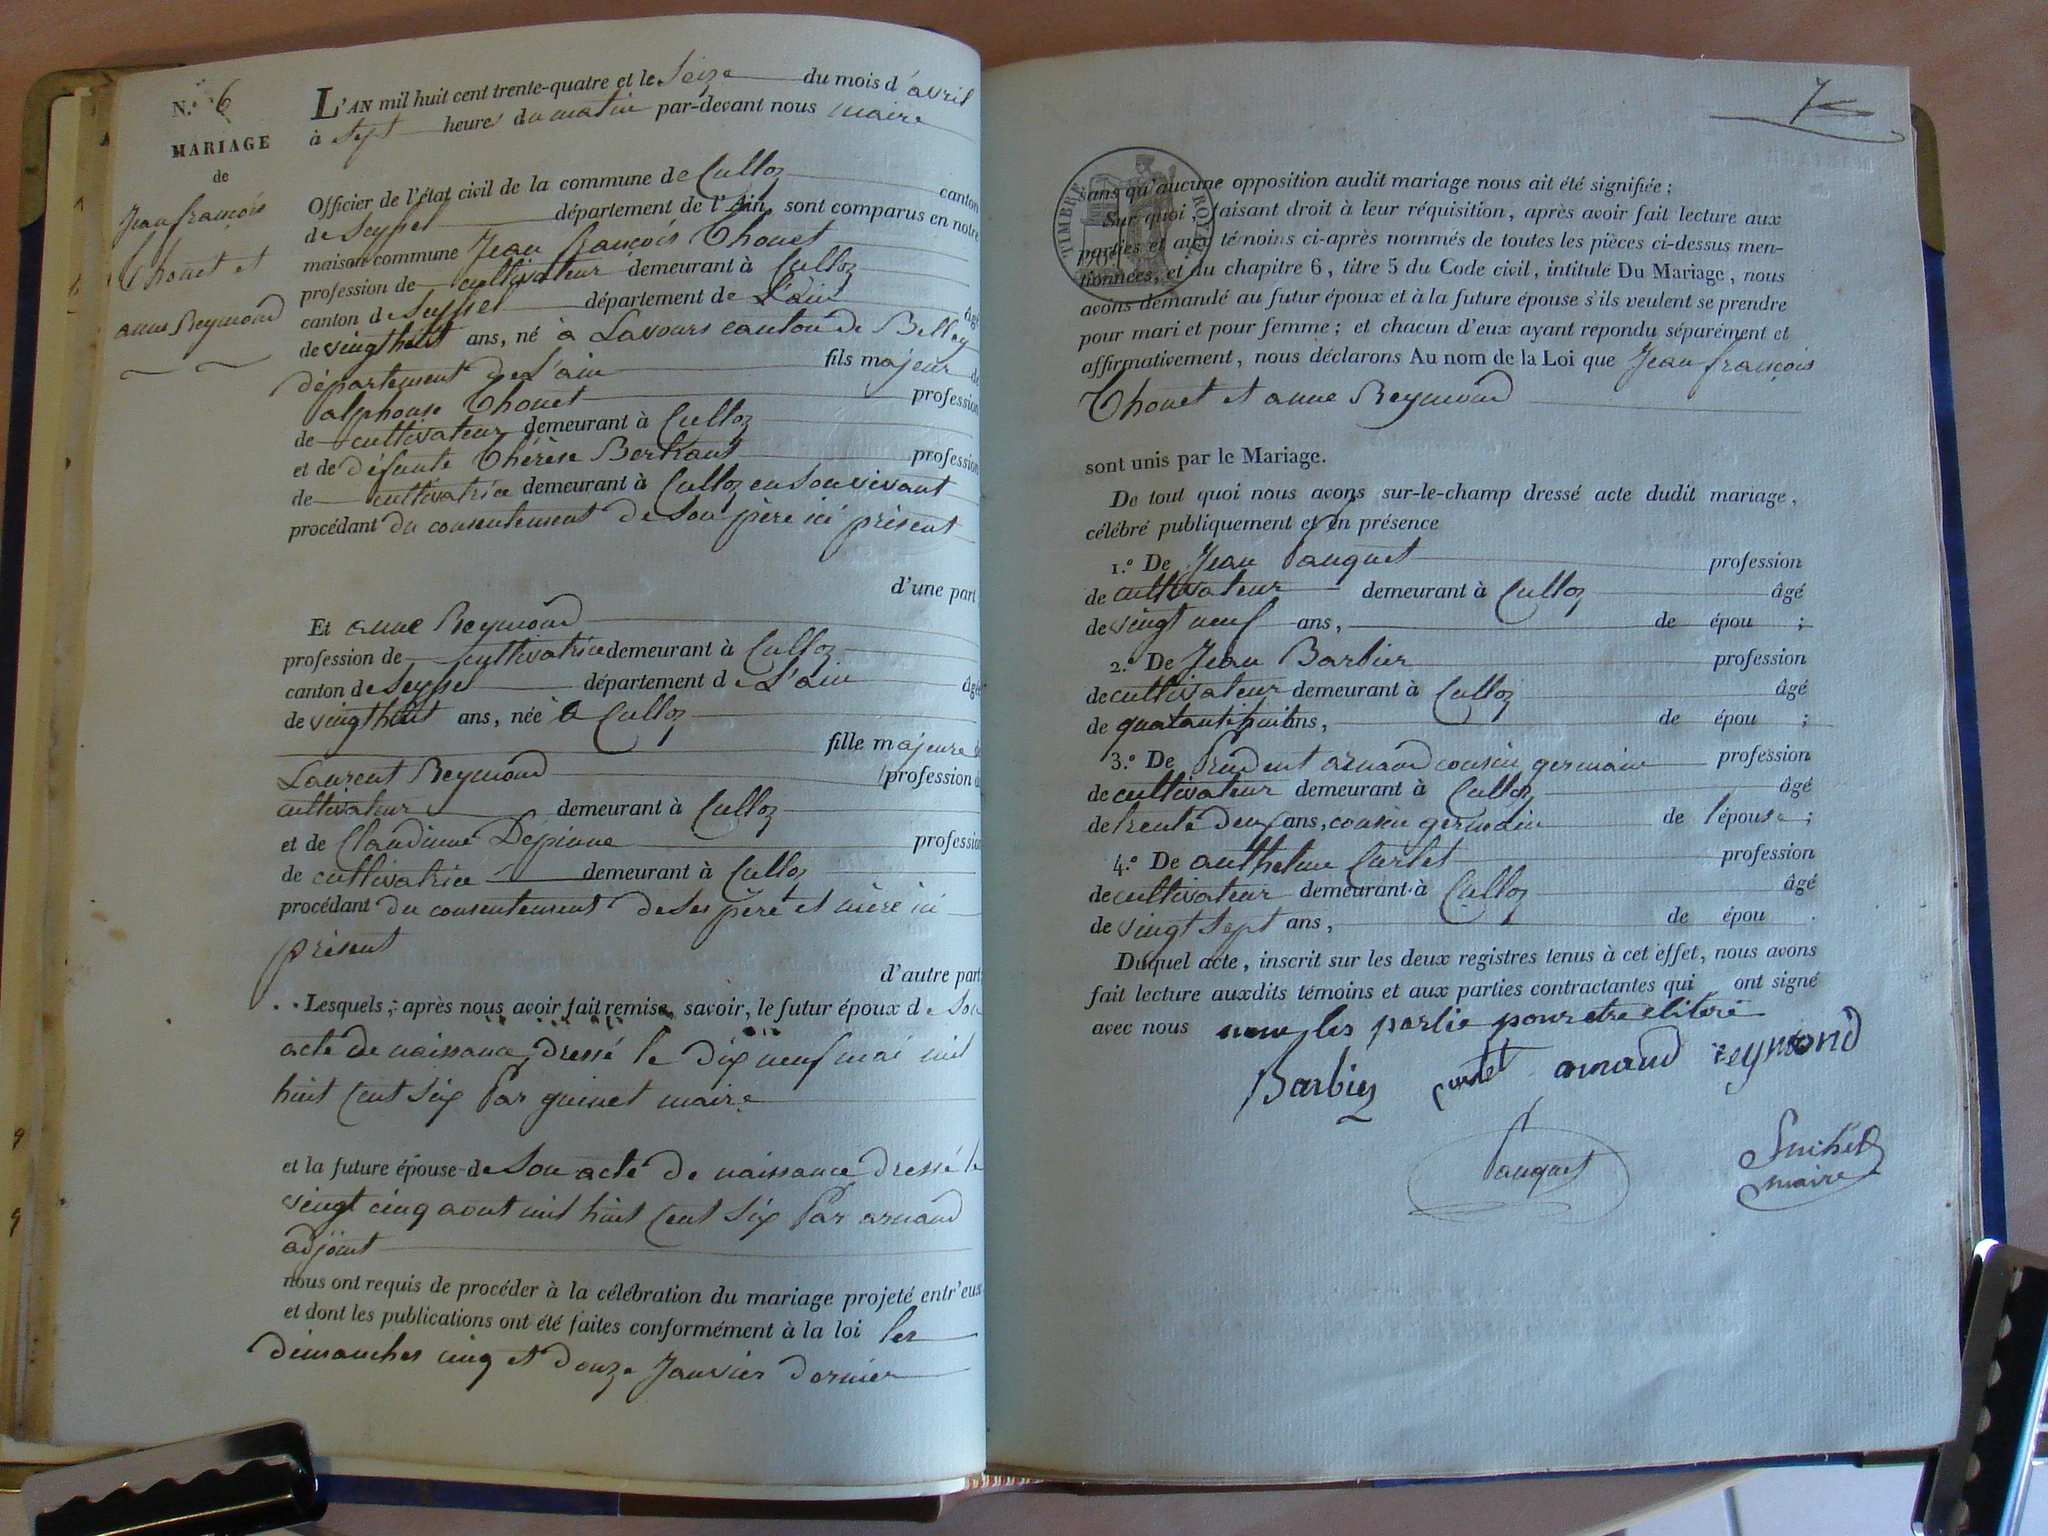 N.° 6
MARIAGE
de
Jean françois
Thouet et
anne Reymond
L'AN mil huit cent trente-quatre et le Seize du mois d'avril
à Sept heures du matin par-devant nous maire
Officier de l'état civil de la commune de Culloz canton
de Seyssel département de l'Ain, sont comparus en notre
maison commune Jean françois Thouet
profession de cultivateur demeurant à Culloz
canton de Seyssel département de L'ain âgé
de vingt huit ans, né à Lavours canton de Belley
département de L'ain fils majeur de
alphonse Thouet profession
de cultivateur demeurant à Culloz
et de défunte Thérèse Bertrant profession
de cultivatrice demeurant à Culloz en son vivant
procédant du consentement de Son père ici présent
d'une part
Et anne Reymond
profession de cultivatrice demeurant à Culloz
canton de Seyssel département de L'ain âgé
de vingt huit ans, née à Culloz
fille majeure de
Laurent Reymond profession de
cultivateur demeurant à Culloz
et de Claudine Depiane profession
de cultivatrice demeurant à Culloz
procédant du consentement de Ses père et mère ici
présent
d'autre part;
Lesquels, après nous avoir fait remise, savoir, le futur époux de Son
acte de naissance, dressé le dix neuf mai mil
huit Cent Six Par guinet maire
et la future épouse de Son acte de naissance dressé le
vingt cinq aout mil huit Cent Six Par arnaud
adjoint
nous ont requis de procéder à la célébration du mariage projeté entr'eux
et dont les publications ont été faites conformément à la loi les
dimanches cinq et douze Janvier dernier
7
TIMBRE ROYAL
sans qu'aucune opposition audit mariage nous ait été signifiée;
Sur quoi, faisant droit à leur réquisition, après avoir fait lecture aux
parties et aux témoins ci-après nommés de toutes les pièces ci-dessus men-
tionnées, et du chapitre 6, titre 5 du Code civil, intitulé Du Mariage, nous
avons demandé au futur époux et à la future épouse s'ils veulent se prendre
pour mari et pour femme; et chacun d'eux ayant repondu séparément et
affirmativement, nous déclarons Au nom de la Loi que Jean françois
Thouet et anne Reymond
sont unis par le Mariage.
De tout quoi nous avons sur-le-champ dressé acte dudit mariage,
célébré publiquement et en présence
1.° De Jean Pauquet profession
de cultivateur demeurant à Culloz âgé
de vingt neuf ans, de épou ;
2.° De Jean Barbier profession
de cultivateur demeurant à Culloz âgé
de quatante huit ans, de épou ;
3.° De Prudent arnaud cousin germain profession
de cultivateur demeurant à Culloz âgé
de trente deux ans, cousin germain de l'épouse;
4.° De anthelme Curtet profession
de cultivateur demeurant à Culloz âgé
de vingt Sept ans, de épou .
Duquel acte, inscrit sur les deux registres tenus à cet effet, nous avons
fait lecture auxdits témoins et aux parties contractantes qui ont signé
avec nous non les partie pour etre elitere
Barbier curtet arnaud reymond
Pauquet
Suchet
maire